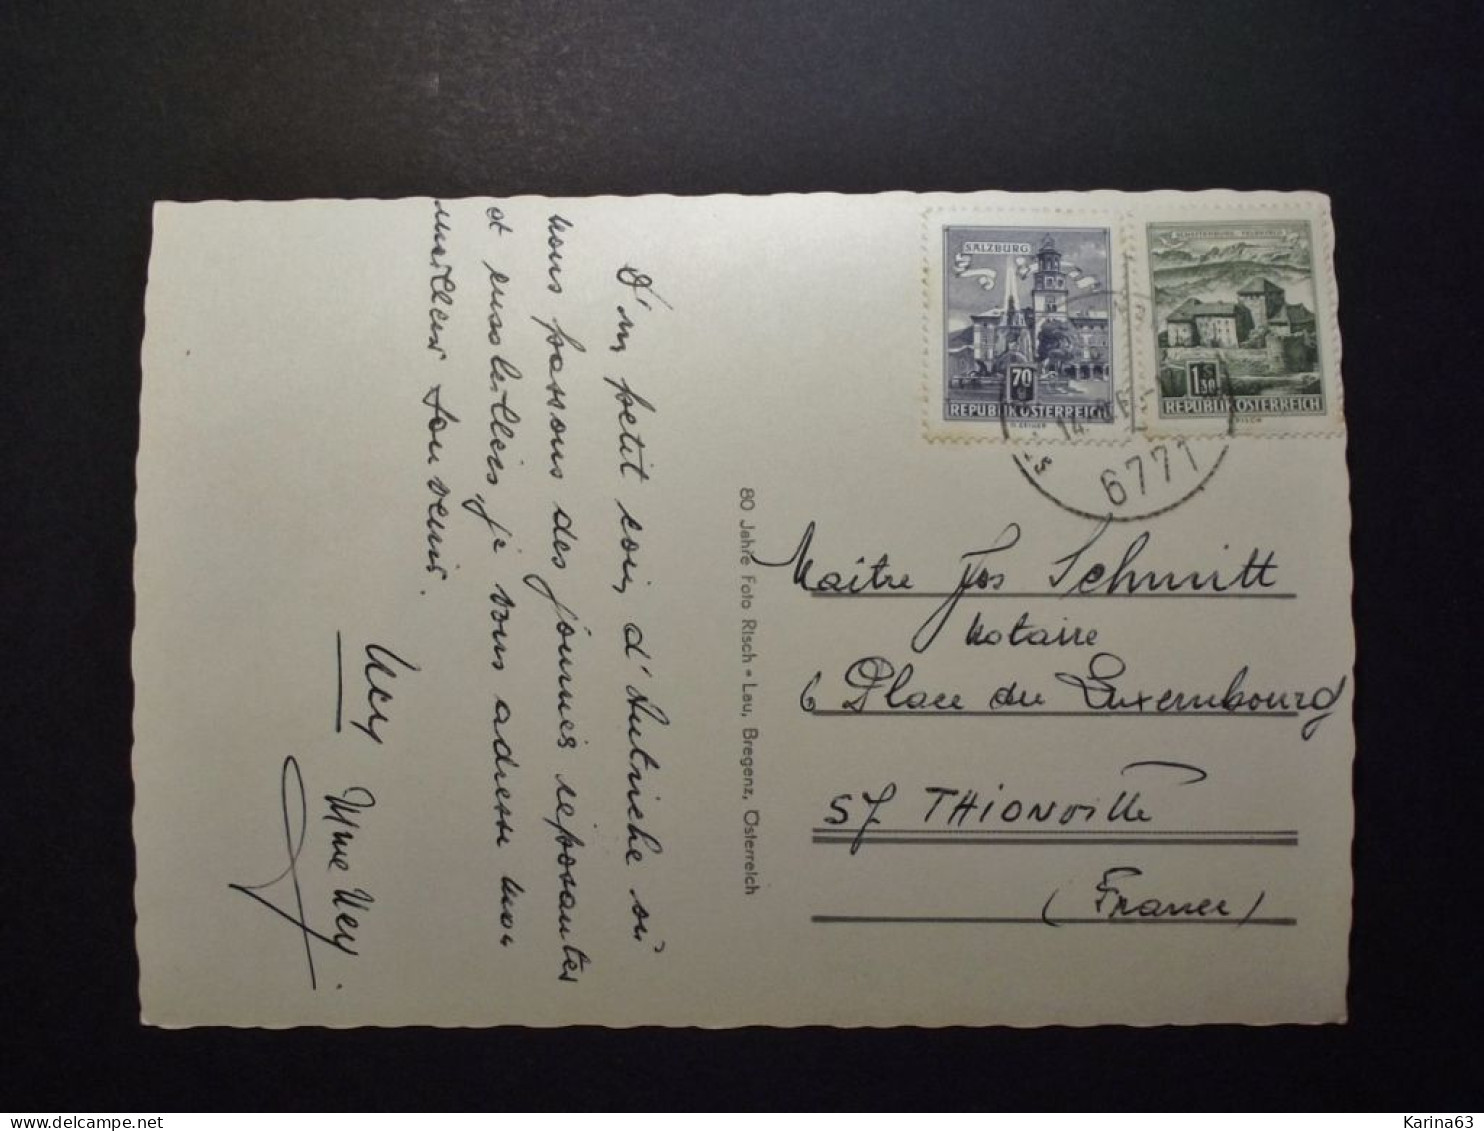 D'un petit coin d'Autriche où
nous passons des journées reposantes
et ensoleillées, je vous adresse mon
meilleur souvenir.
Mme
80 Jahre Foto Risch • Lau, Bregenz, Österreich
SALZBURG
70
REPUBLIK ÖSTERREICH
SCHATTENBURG · FELDKIRCH
1 S 50
REPUBLIK ÖSTERREICH
14.
6771
Maître Jos Schmitt
Notaire
6 Place du Luxembourg
57 THIONVille
(France)
Karina63